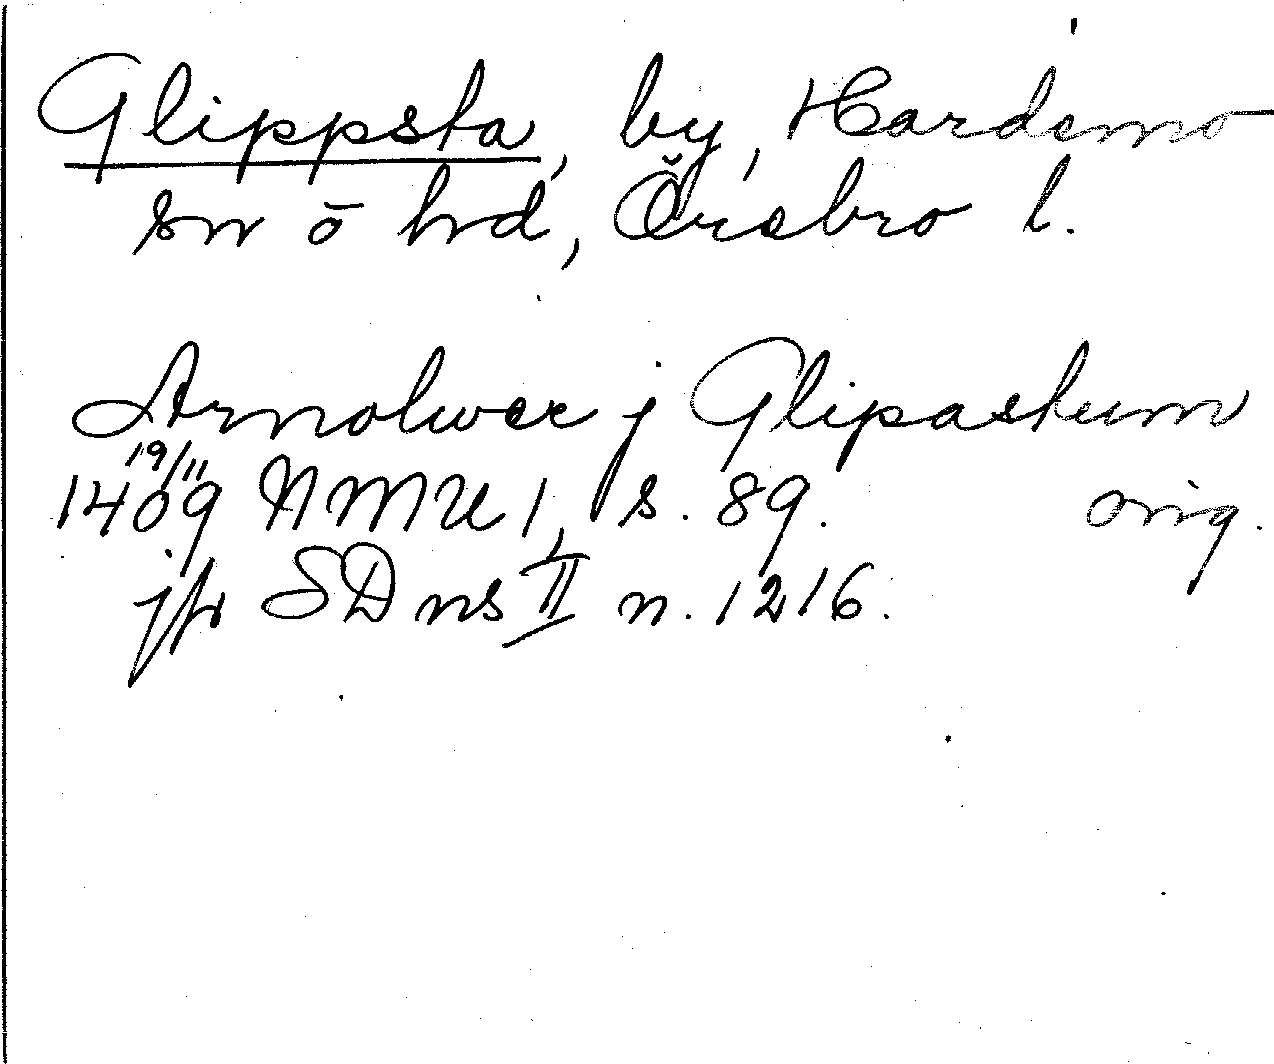 Glippsta, by, Hardemo
sn o hd, Örebro l.
Arnolwer j Glipastum
19/11
1409 NMU 1, s. 89. orig.
jfr SD ns II n. 1216.